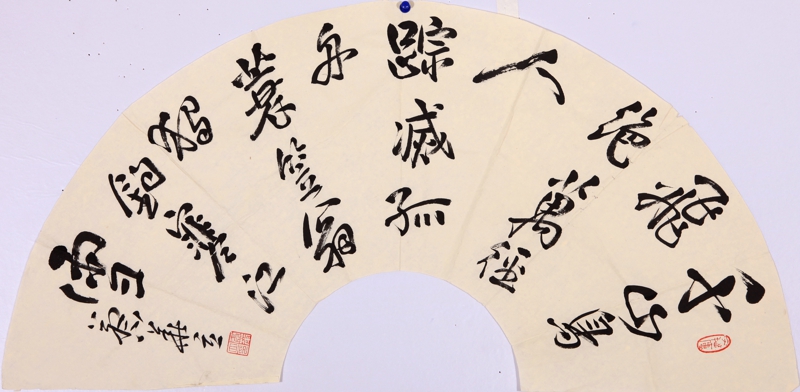 千山鳥
飛
絕萬徑
人
踪滅孤
舟
蓑笠翁
獨
釣寒江
雪